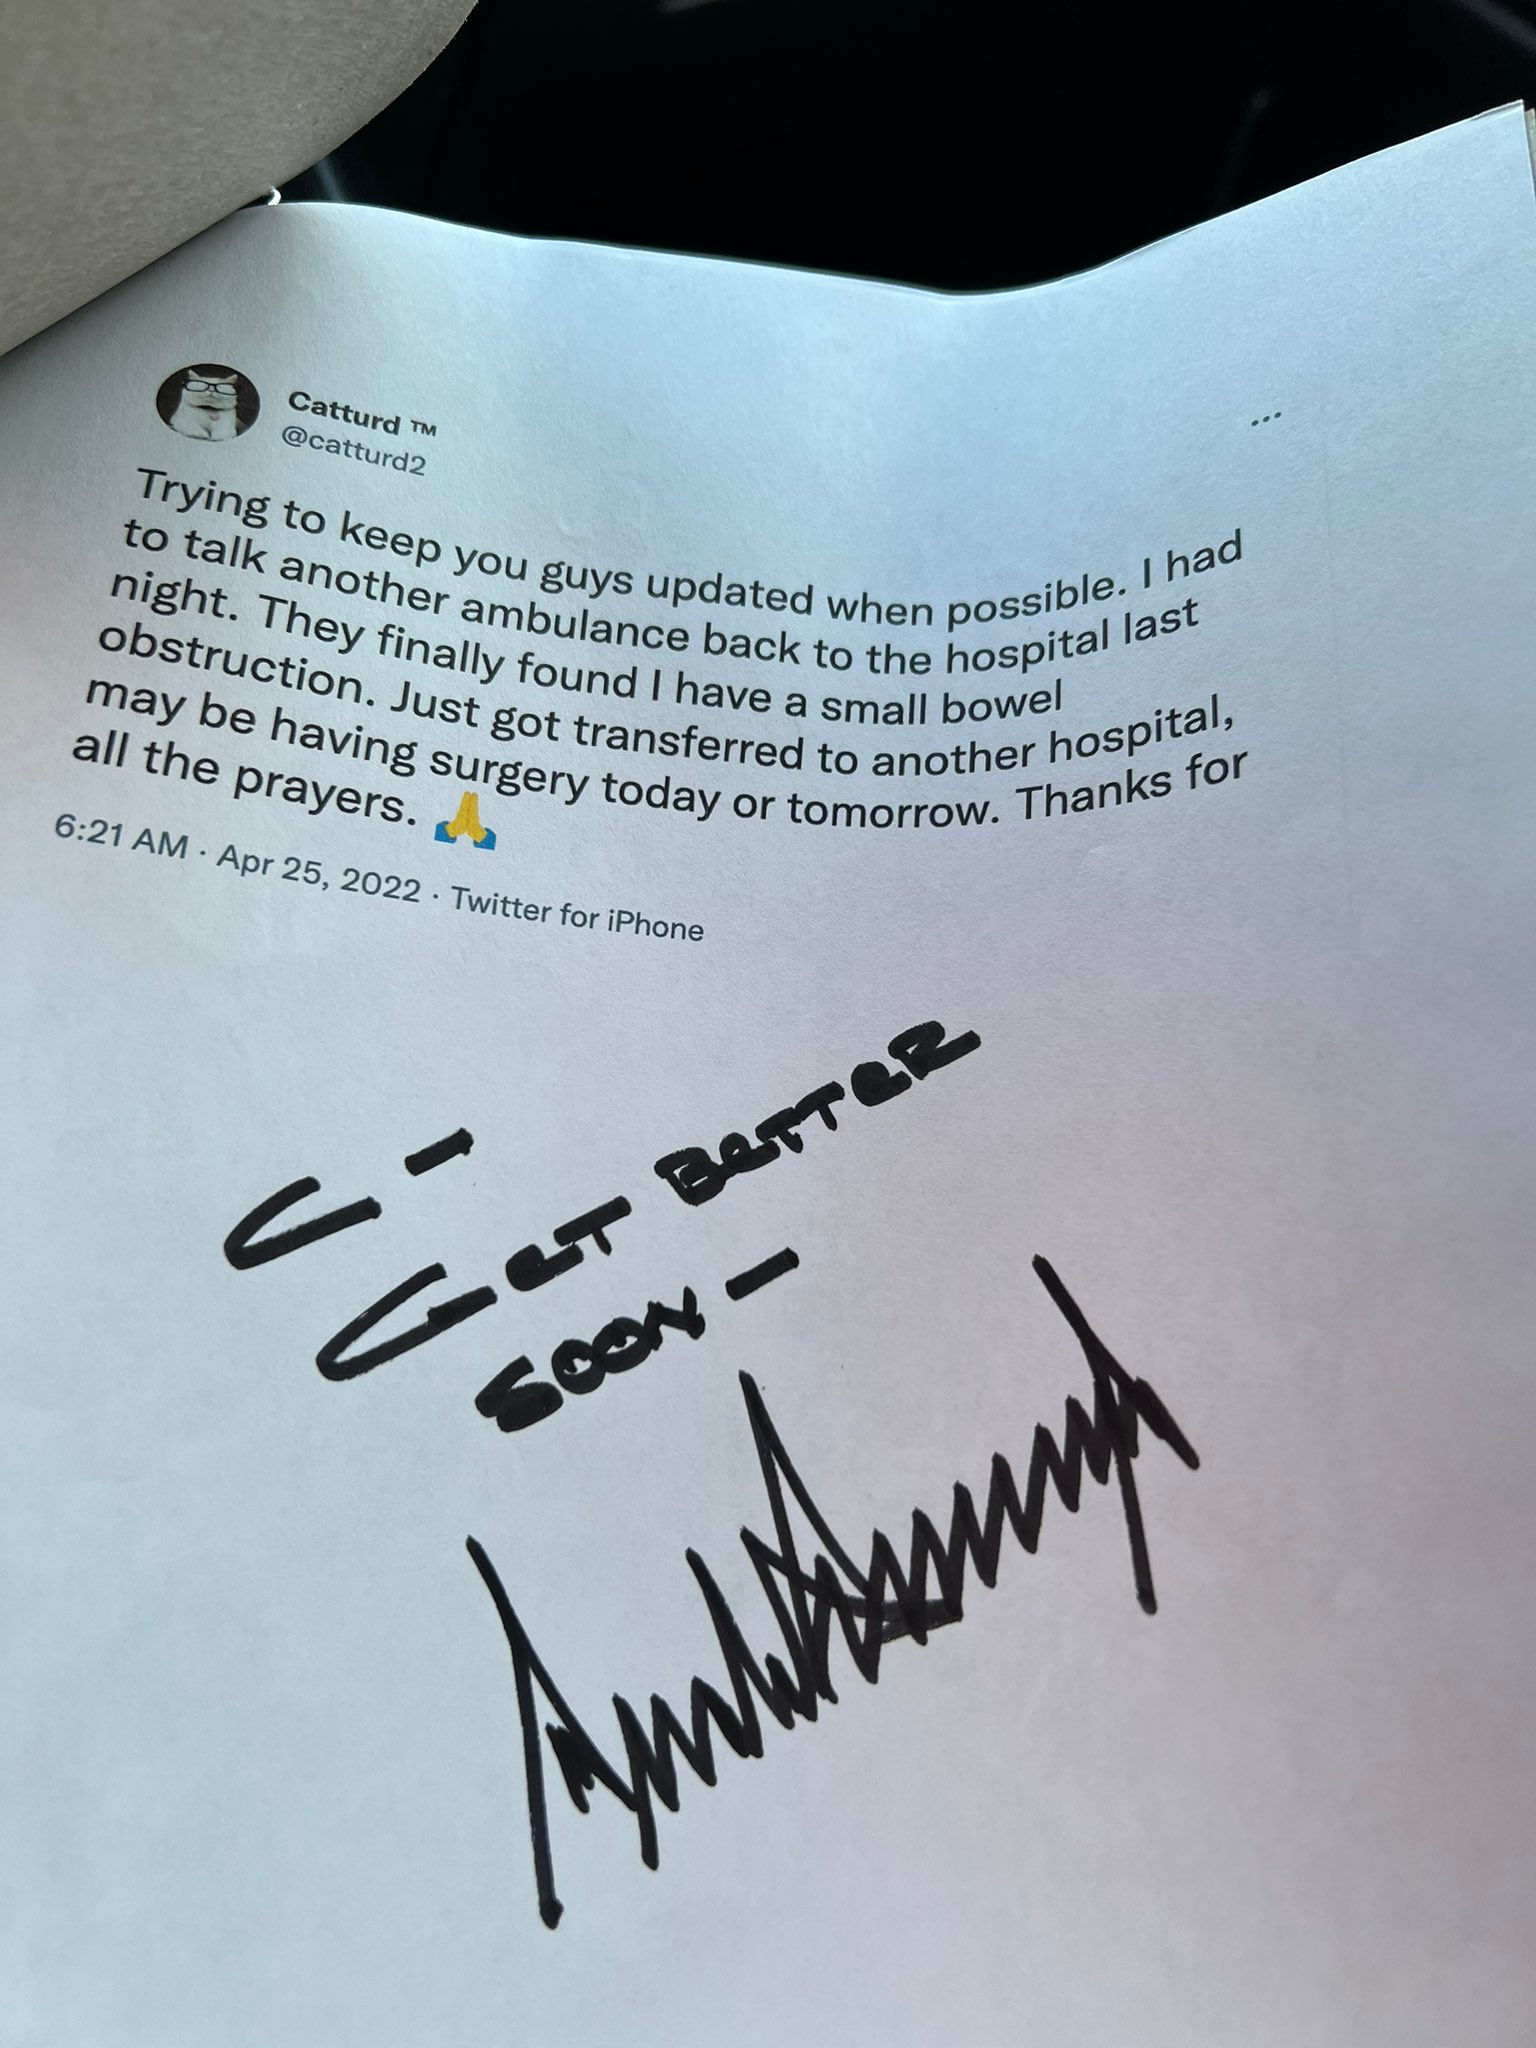 Catturd ™
@catturd2
...
Trying to keep you guys updated when possible. I had
to talk another ambulance back to the hospital last
night. They finally found I have a small bowel
obstruction. Just got transferred to another hospital,
may be having surgery today or tomorrow. Thanks for
all the prayers. 🙏
6:21 AM · Apr 25, 2022 · Twitter for iPhone
C -
GET BETTER
SOON -